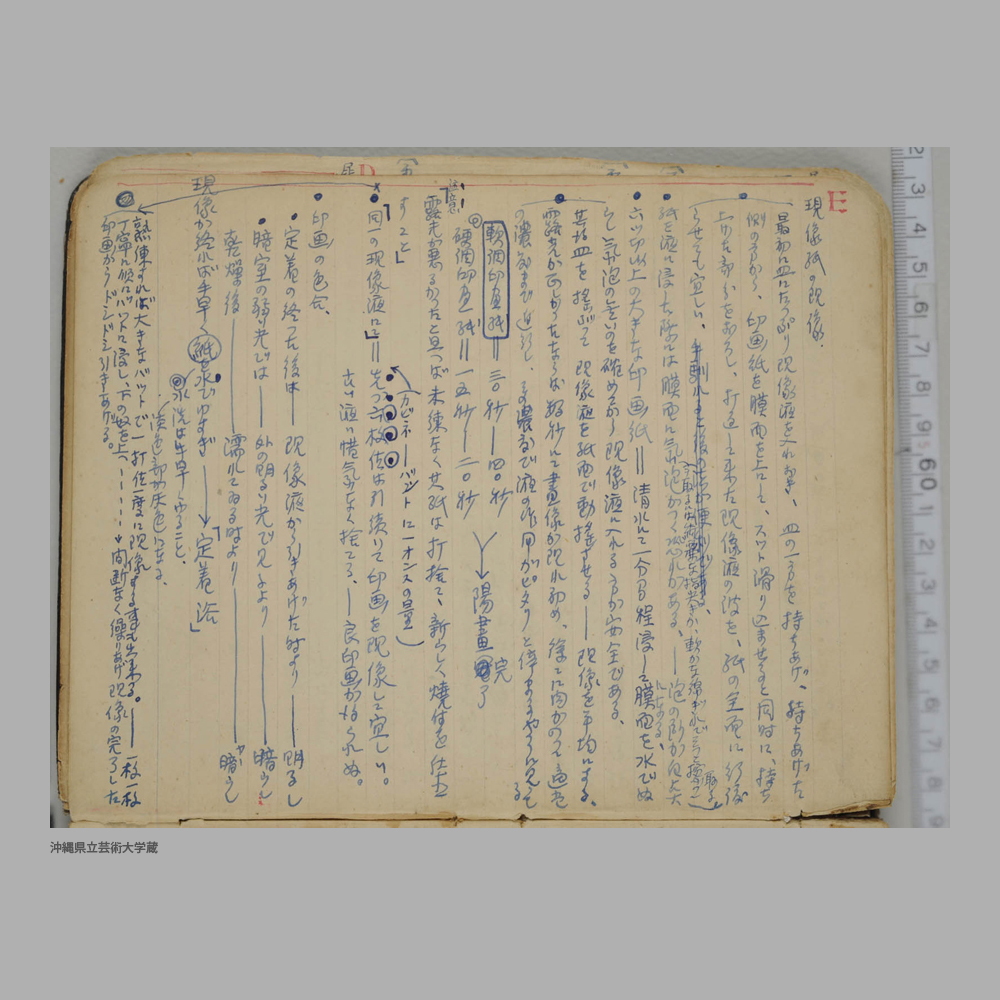 E
現像紙の現像、
最初に皿にたっぷり現像液を入れ置き、皿の一方を持ちあげ、持ちあげた
側の方から、印画紙を膜面を上にして、スット滑り込ませると同時に、持ち
上げた部分をおろし、打返して来た現像液の波を、紙の全面に行渡
らせても宜しい、
紙を液に浸した際には膜面に気泡がつく恐れがある、―泡の所が白点
になる、
六ツ切以上の大きな印画紙=清水に一分間程浸して膜面を水でぬ
らし気泡のないのを確めてから現像液に入れる方が安全である、
其指皿を揺ぶって現像液を紙面で動揺させる―現像を平均にする、
露光が正しかったならば数秒にして畫像が現れ初め、徐々に肉がのって適当
の濃度まで進行し、その濃度で液の作用がピタリと停まるやうに見え
る
軟調印畫紙=三〇秒―四〇秒
硬調印畫紙=一五秒―二〇秒
陽畫完了
注意
露光が悪るかったと思へば未練なく其紙は打捨て、新らしく焼付を仕直
すこと」
同一の現像液にて=先づ 枚位は引続いて印画を現像して宜しい。
(カビネ―バットに一オンスの量)
古い液は惜気もなく捨てる、―良印画が作くれぬ。
印画の色合、
定着の終った後は―現像液から引きあげた時より―明るし
暗室の弱い光では―外の明るい光で見るより―暗し
乾燥後―濡れてゐる時より―やや暗し
現像が終れば手早く紙を水でゆすぎ→「定着浴」
水洗は手早くやること、
淡色部が灰色になる、
熟練すれば大きなバットで一打位一度に現像する事も出来る。―一枚一枚
丁寧に順にバットに浸し、下の奴を上へ……間断なく繰りあげ現像の完了した
印画からドシドシ引きあげる。
沖縄県立芸術大学蔵